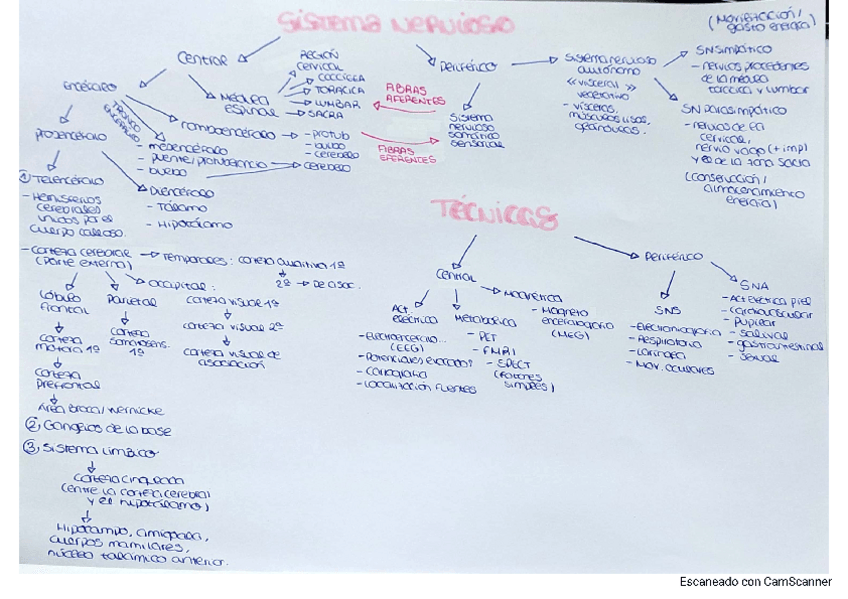 SISTEMA NERVIOSO
(Movilización/
gasto energía)
Central
Periférico
Sistema nervioso
autónomo
<< visceral >>
vegetativo
- vísceras,
músculos lisos,
glándulas.
SN simpático
- nervios procedentes
de la médula
torácica y lumbar
SN parasimpático
- nervios de la
cervical,
nervio vago (+ imp)
y el de la zona sacra
(conservación/
almacenamiento
energía)
Sistema
nervioso
somático
sensorial
FIBRAS
AFERENTES
FIBRAS
EFERENTES
Encéfalo
Médula
espinal
REGIÓN
CERVICAL
COCCÍGEA
TORÁCICA
LUMBAR
SACRA
TRONCO
ENCEFÁLICO
Prosencéfalo
Romboencéfalo
- protub
- bulbo
- cerebelo
- mesencéfalo
- puente/protuberancia
- bulbo
cerebelo
① Telencéfalo
- Hemisferios
cerebrales
unidos por el
cuerpo calloso.
Diencéfalo
- Tálamo
- Hipotálamo
- Corteza cerebral
(parte externa)
Temporales: corteza auditiva 1ª
2ª
De asoc.
Lóbulo
frontal
Parietal
Occipital:
corteza visual 1ª
corteza visual 2ª
corteza visual de
asociación
corteza
motora 1ª
corteza
somatosens.
1ª
corteza
prefrontal
Área Broca/Wernicke
②, Ganglios de la base
③, Sistema límbico
corteza cingulada
(entre la corteza cerebral
y el hipotálamo)
Hipocampo, amígdala,
cuerpos mamilares,
núcleo talámico anterior.
TÉCNICAS
Central
Periférico
Act.
eléctrica
- Electroencefalo...
(EEG)
- Potenciales evocados
- Localización fuentes
Metabólica
- PET
- FMRI
- SPECT
(fotones
simples)
Magnética
- Magneto
encefalografía
(MEG)
SNS
- Electromiografía
- Respiratoria
- Laríngea
- Mov. oculares
SNA
- Act eléctrica piel
- Cardiovascular
- Pupilar
- salival
- gastrointestinal
- sexual
Escaneado con CamScanner